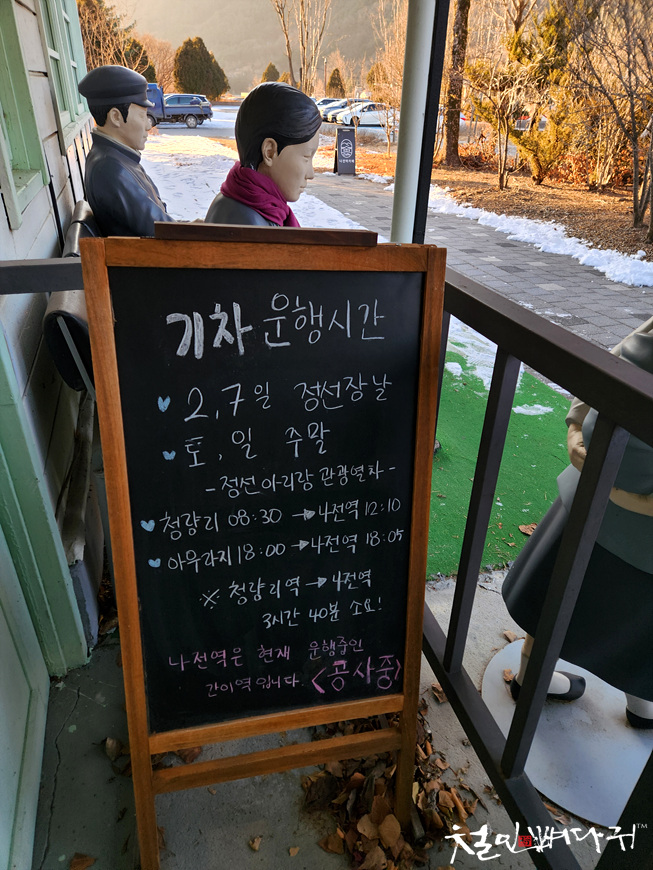 기차 운행시간
2,7일 정선장날
토,일 주말
-정선아리랑 관광열차-
청량리 08:30 → 나전역 12:10
아우라지 18:00 → 나전역 18:05
※ 청량리역 → 나전역
3시간 40분 소요!
나전역은 현재 운행중인
간이역입니다 <공사중>
철인뼈다귀™